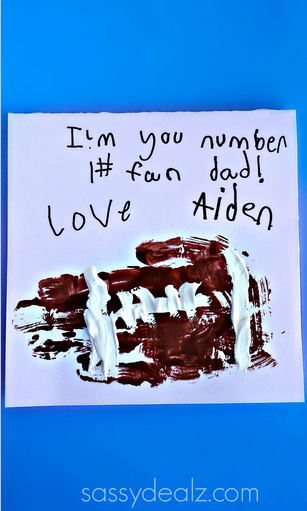 I'm you number
1# fan dad!
Love Aiden
sassydealz.com